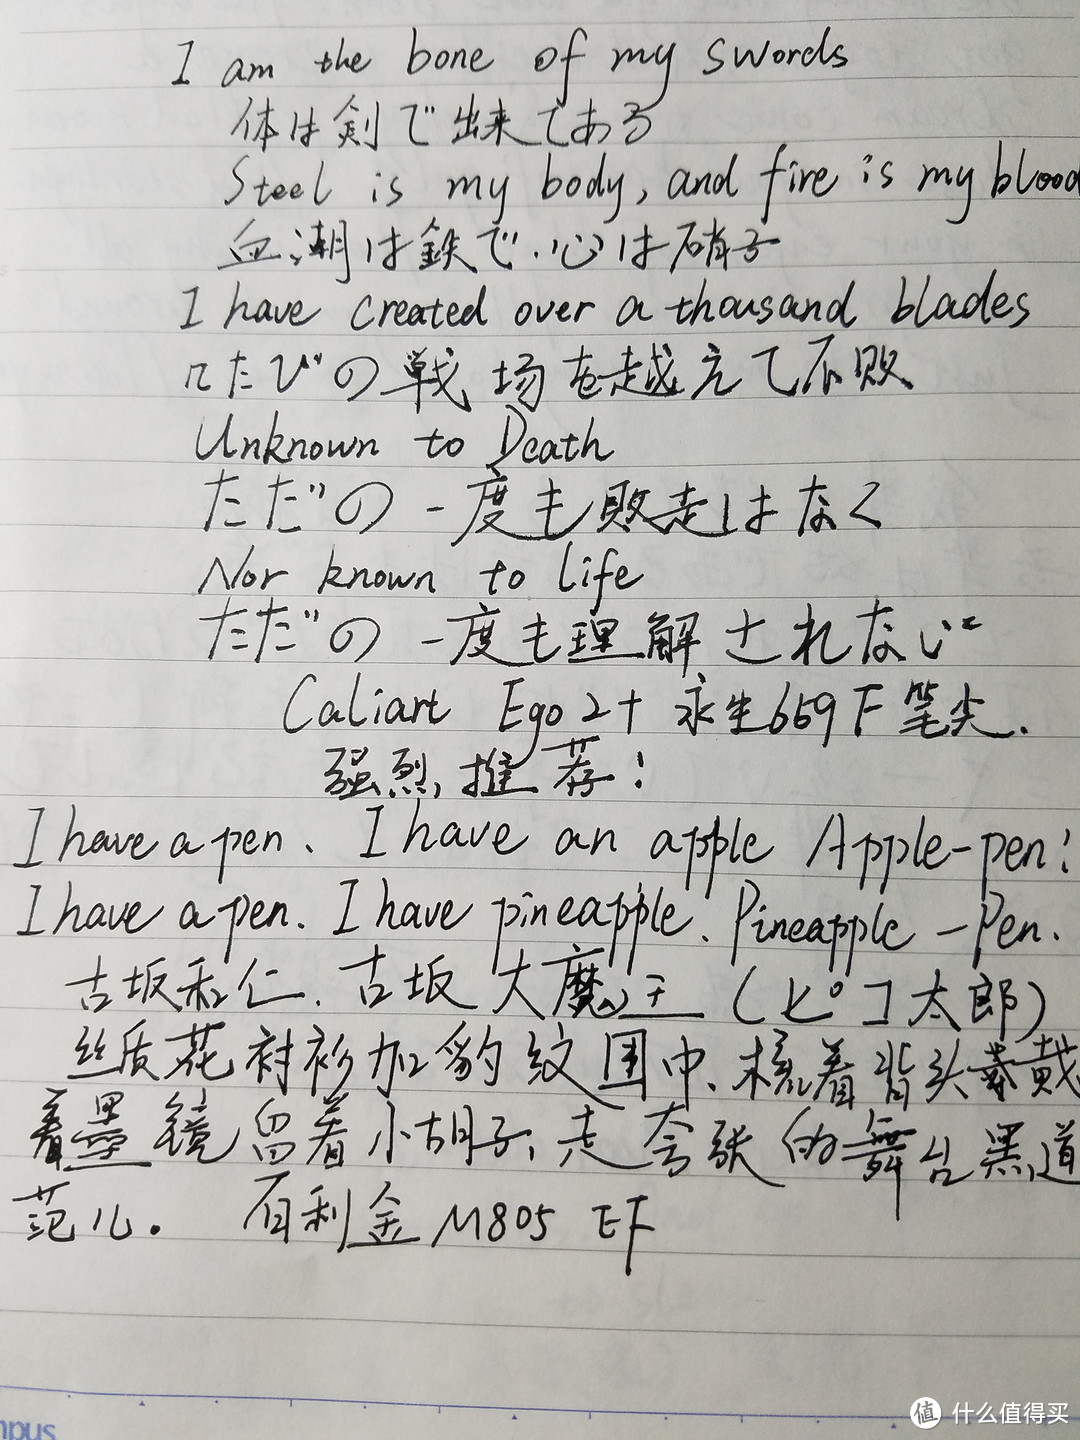 I am the bone of my swords
体は剣で出来てある
Steel is my body, and fire is my blood
血潮は鉄で.心は硝子
I have created over a thousand blades
たびの戦場を越えて不敗
Unknown to Death
ただの一度も敗走はなく
Nor known to life
ただの一度も理解されない
Caliart Ego 2+ 永生659 F 笔尖.
强烈推荐!
I have a pen. I have an apple Apple-pen!
I have a pen. I have pineapple. Pineapple-Pen.
古坂和仁. 古坂大魔王(ピコ太郎)
丝质花衬衫加豹纹围巾、梳着背头戴
着墨镜留着小胡子、走夸张的舞台黑道
范儿. 百利金M805 EF
mpus
值 什么值得买